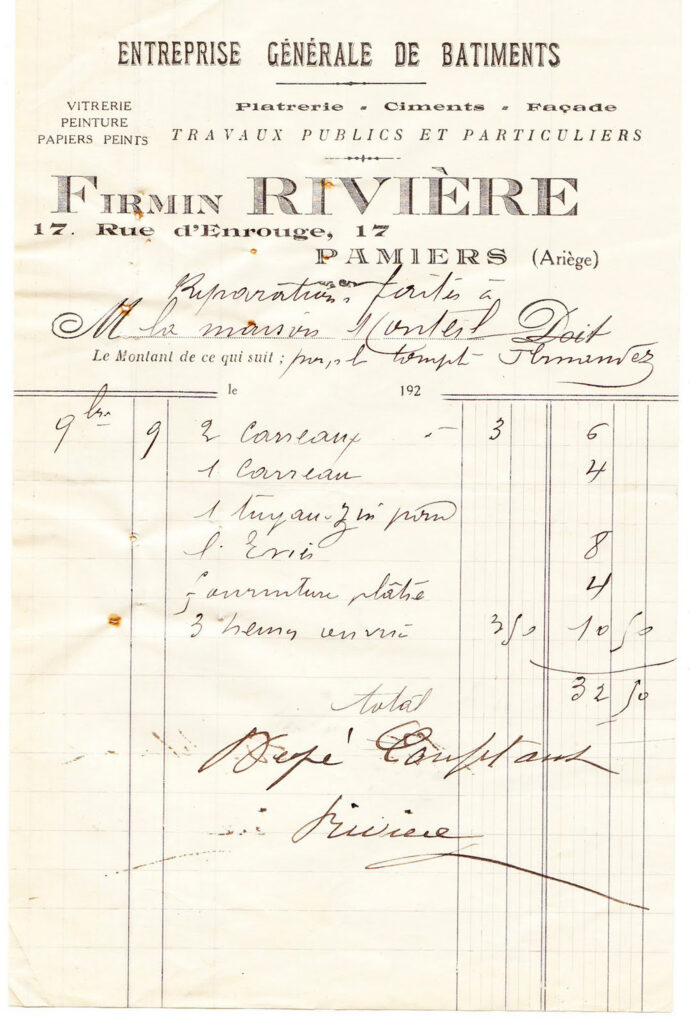 ENTREPRISE GÉNÉRALE DE BATIMENTS
VITRERIE
PEINTURE
PAPIERS PEINTS
Platrerie - Ciments - Façade
TRAVAUX PUBLICS ET PARTICULIERS
FIRMIN RIVIÈRE
17. Rue d'Enrouge, 17
PAMIERS (Ariège)
Réparations faites à
M la maison Monteil Doit
Le Montant de ce qui suit ; pour le compte Fernandez
le 192
9bre 9 2 carreaux 3 6
1 carreau 4
1 tuyau zin pour
l'Evié 8
fourniture plâtre 4
3 heures ouvrié 3 50 10 50
total 32 50
Rivière